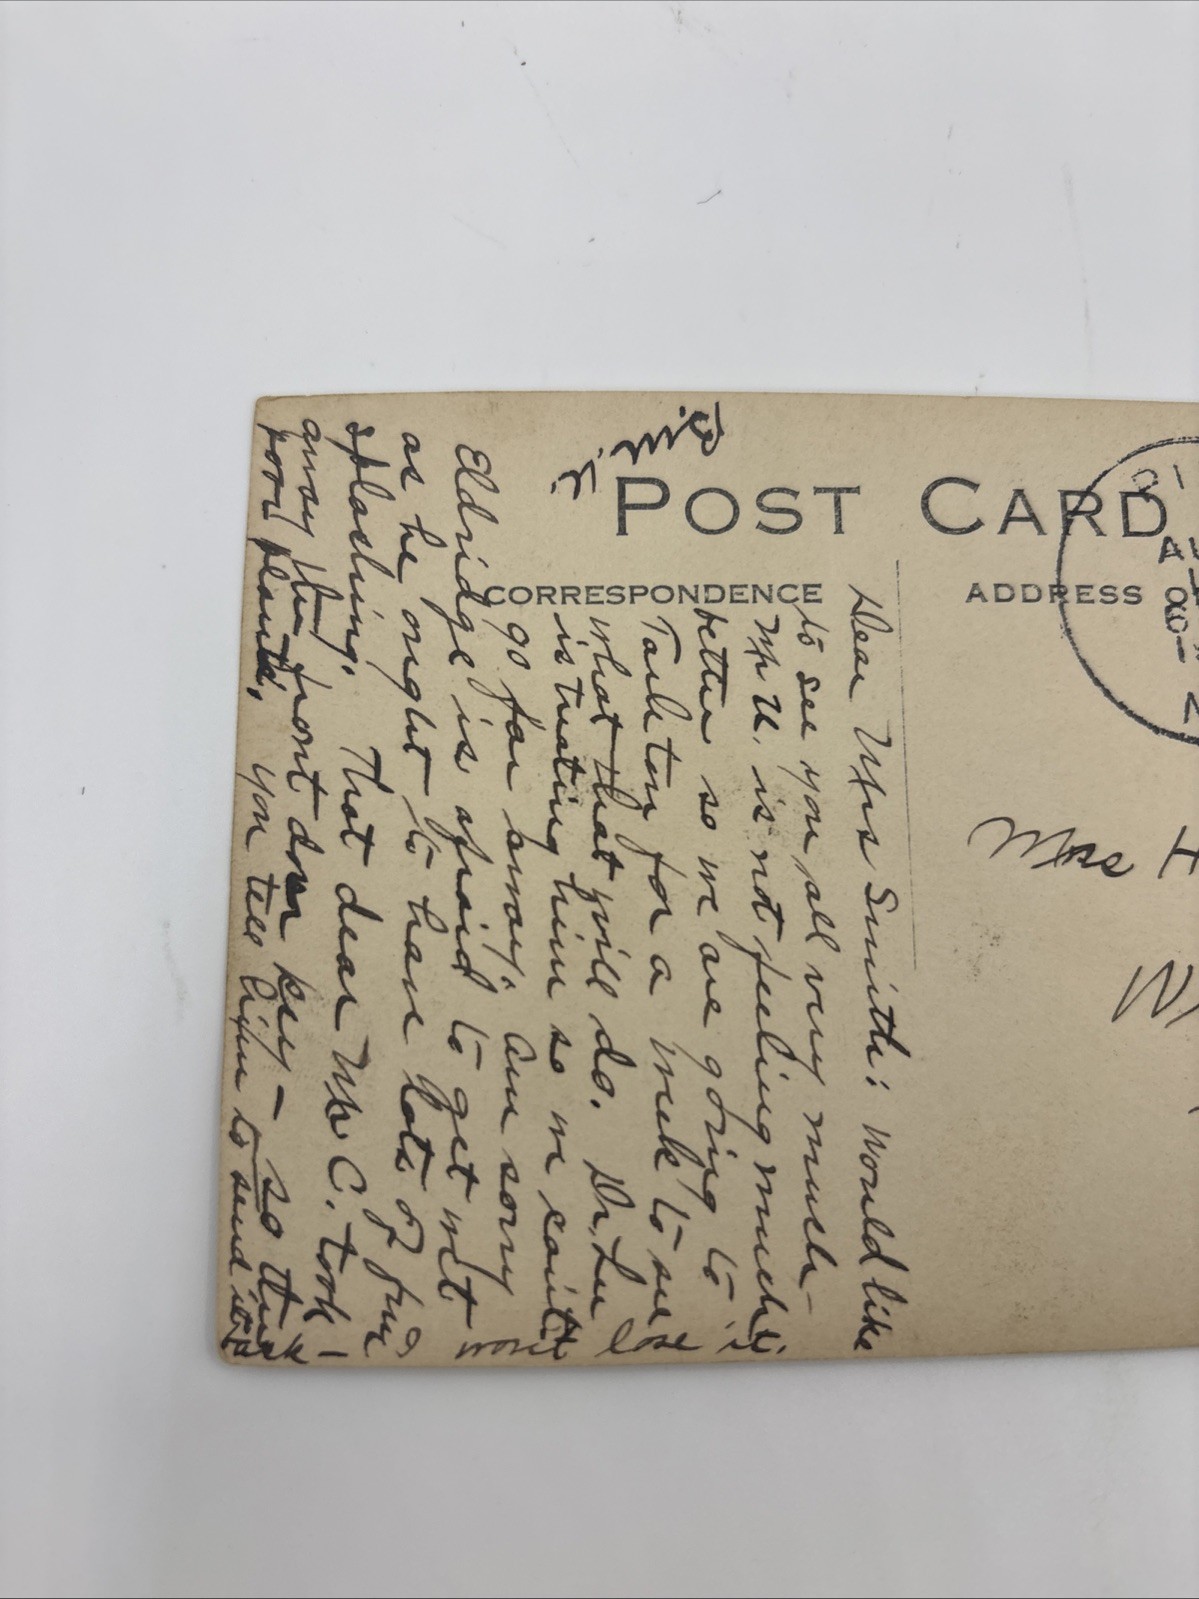 POST CARD
CORRESPONDENCE
ADDRESS
Dear Mrs Smith: Would like
to see you all very much –
Mr U. is not feeling much
better so we are going to
Tarleton for a week to see
what that will do. Dr. Lee
is treating him so we can't
go far away. Am sorry
Eldridge is afraid to get wet
as he ought to have lots of fun
splashing. That dear Mr C. took –
away the front door key – so think
poor plants, you tell him to send it
lose it
Mrs H